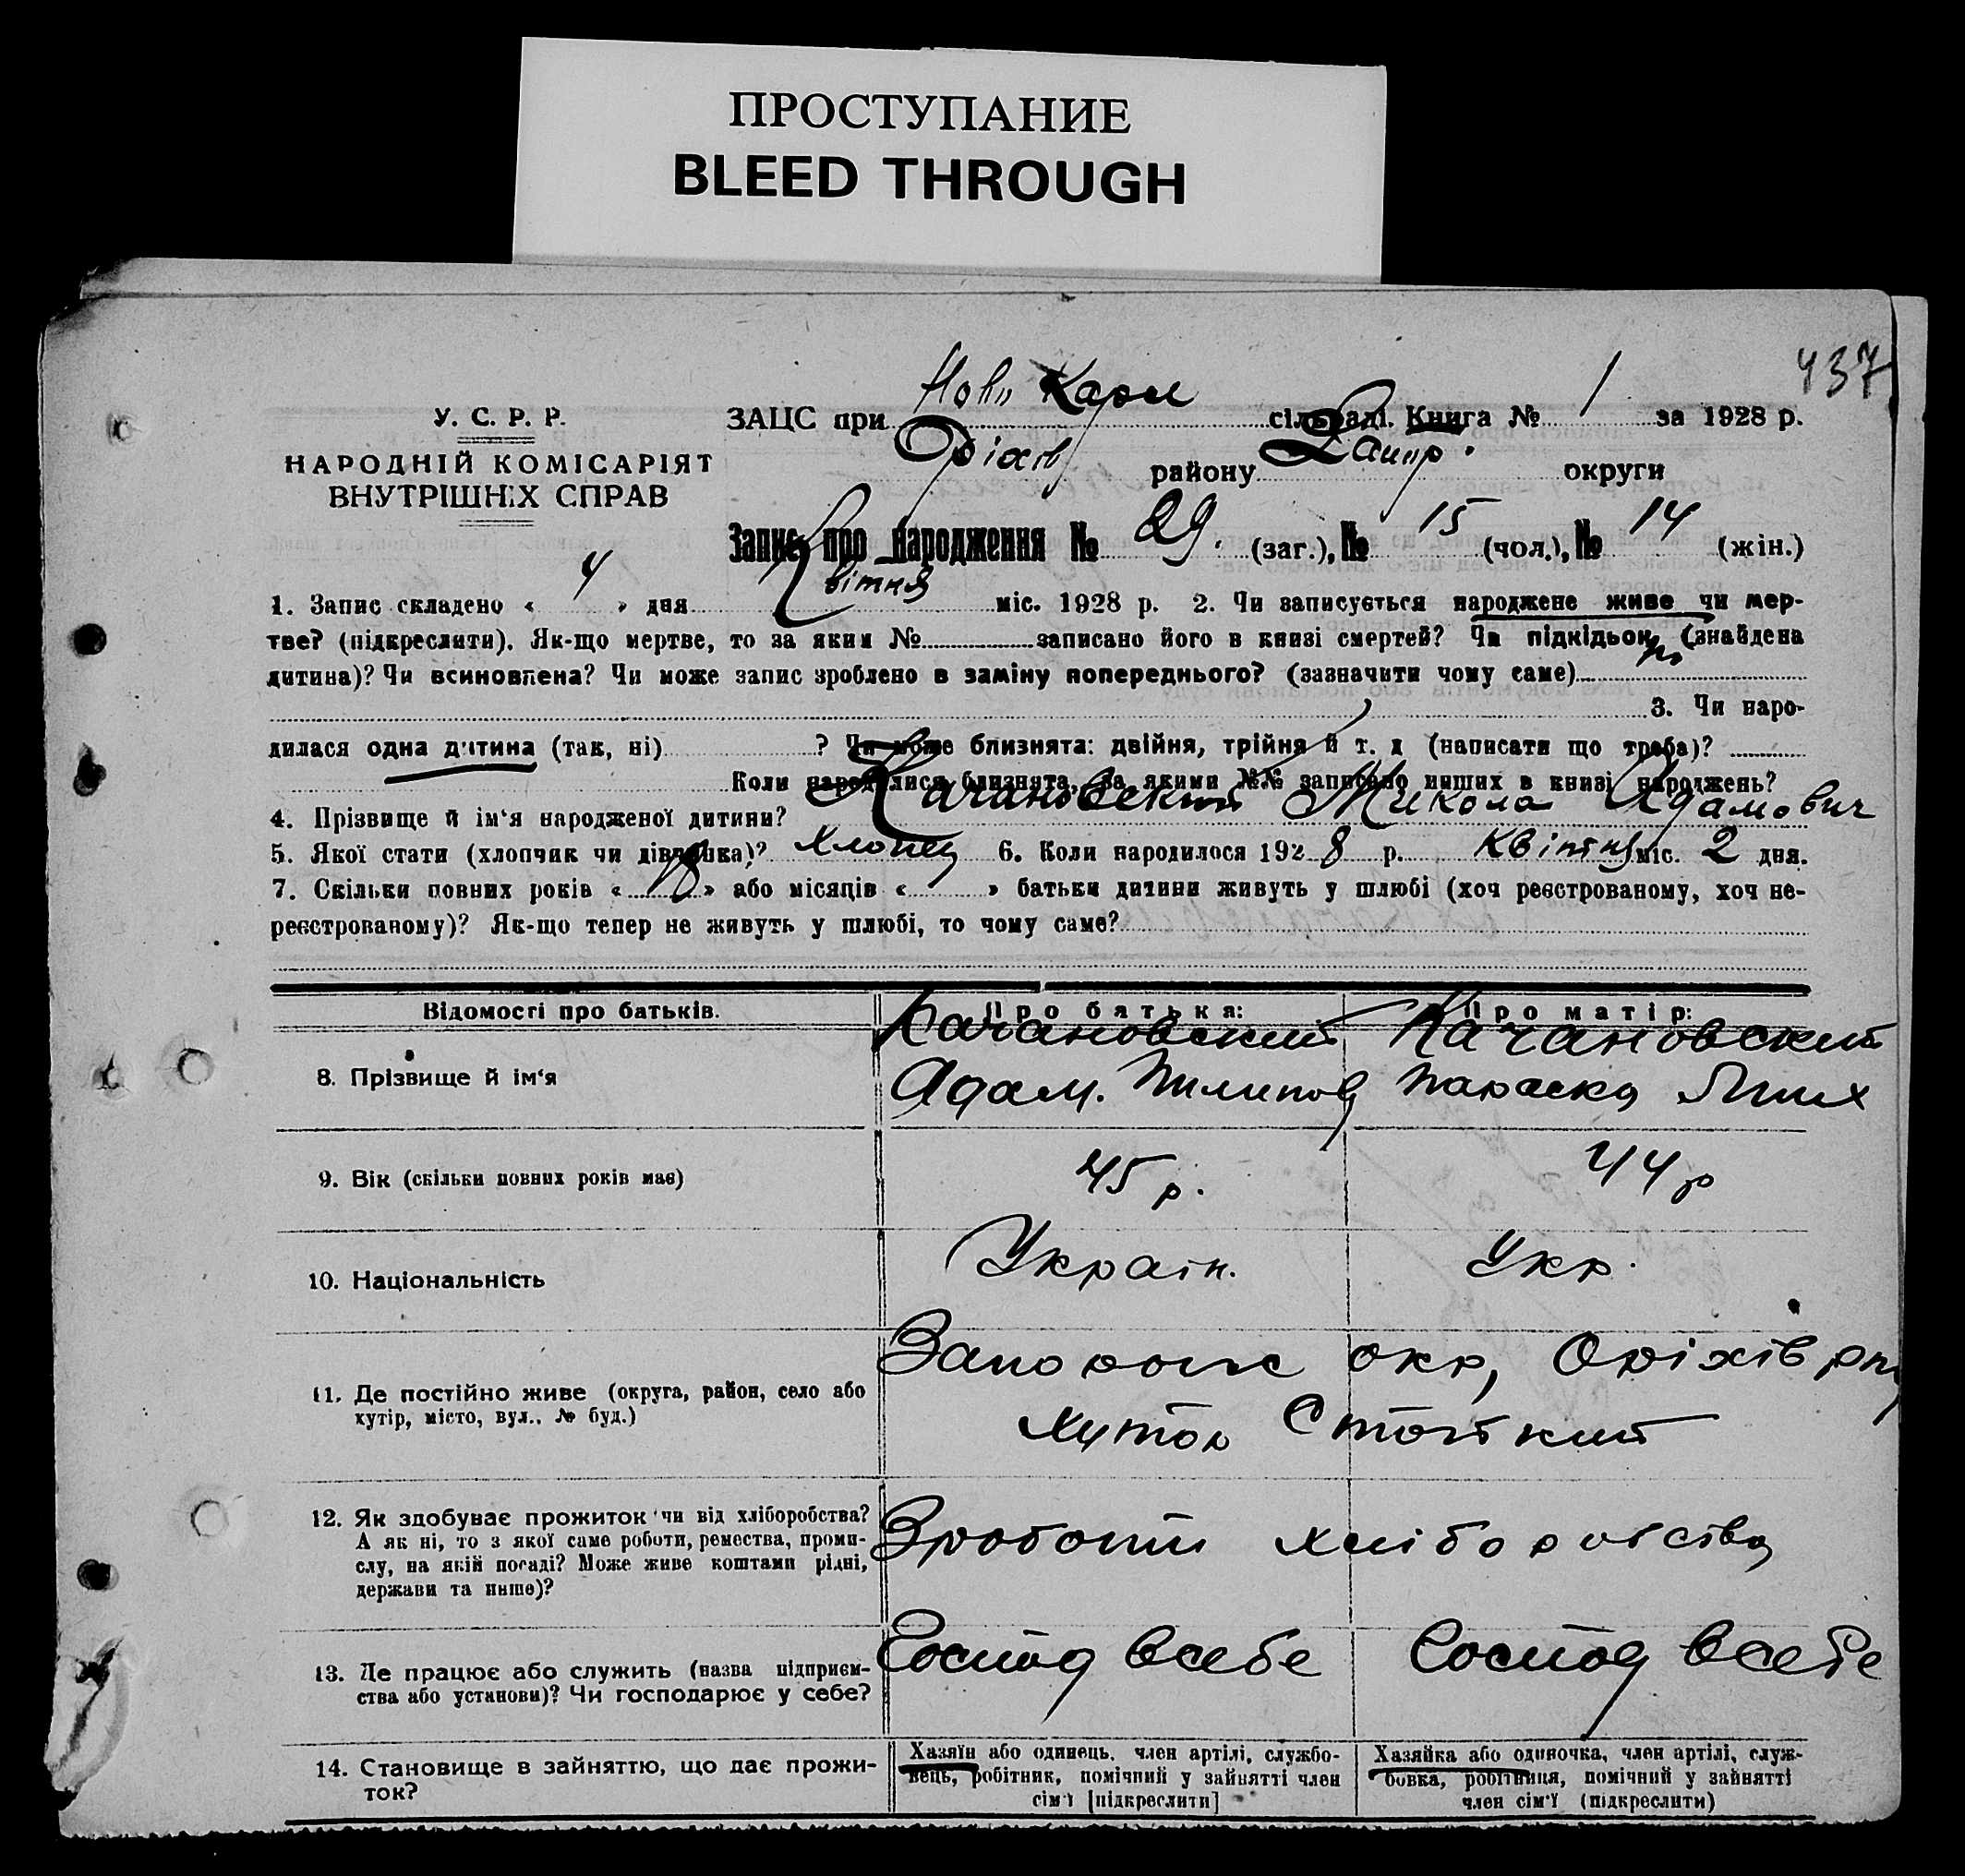 ПРОСТУПАНИЕ
BLEED THROUGH
437
У. С. Р. Р.
НАРОДНІЙ КОМІСАРІЯТ
ВНУТРІШНІХ СПРАВ
ЗАЦС при Нови Кари сільраді. Книга № 1 за 1928 р.
Оріхів району округи
Запис про народження № 29. (заг.), № 15 (чол.), № 14 (жін.)
1. Запис складено « 4 » дня Квітня міс. 1928 р. 2. Чи записується народжене живе чи мер-
тве? (підкреслити). Як-що мертве, то за яким № записано його в книзі смертей? Чи підкідьок (знайдена
дитина)? Чи всиновлена? Чи може запис зроблено в заміну попереднього? (зазначити чому саме)
3. Чи наро-
дилася одна дитина (так, ні) ? Чи може близнята: двійня, трійня й т. д (написати що треба)?
Коли народилися близнята, за якими №№ записано инших в книзі народжень?
4. Прізвище й ім‘я народженої дитини? Качановский Микола Адамович
5. Якої стати (хлопчик чи дівчинка)? Хлопец 6. Коли народилося 1928 р. Квітня міс. 2 дня.
7. Скільки повних років « 18 » або місяців « » батьки дитини живуть у шлюбі (хоч реєстрованому, хоч не-
реєстрованому)? Як-що тепер не живуть у шлюбі, то чому саме?
Відомості про батьків. Про батька: Про матір:
8. Прізвище й ім‘я Качановский Качановский
Адам. Пилипов Параска
9. Вік (скільки повних років має) 45 р. 44 р
10. Національність Украін. Укр.
11. Де постійно живе (округа, район, село або
хутір, місто, вул., № буд.)
Запорож окр, Оріхів
хутор
12. Як здобуває прожиток чи від хліборобства?
А як ні, то з якої саме роботи, ремества, проми-
слу, на якій посаді? Може живе коштами рідні,
держави та инше)?
Зроботи хліборобства
13. Де працює або служить (назва підприєм-
ства або установи)? Чи господарює у себе?
Господ всебе Господ всебе
14. Становище в зайняттю, що дає прожи-
ток?
Хазяїн або одинець, член артілі, службо-
вець, робітник, помічний у зайнятті член
сім‘ї [підкреслити]
Хазяйка або одиночка, член артілі, служ-
бовка, робітниця, помічний у зайнятті
член сім‘ї (підкреслити)